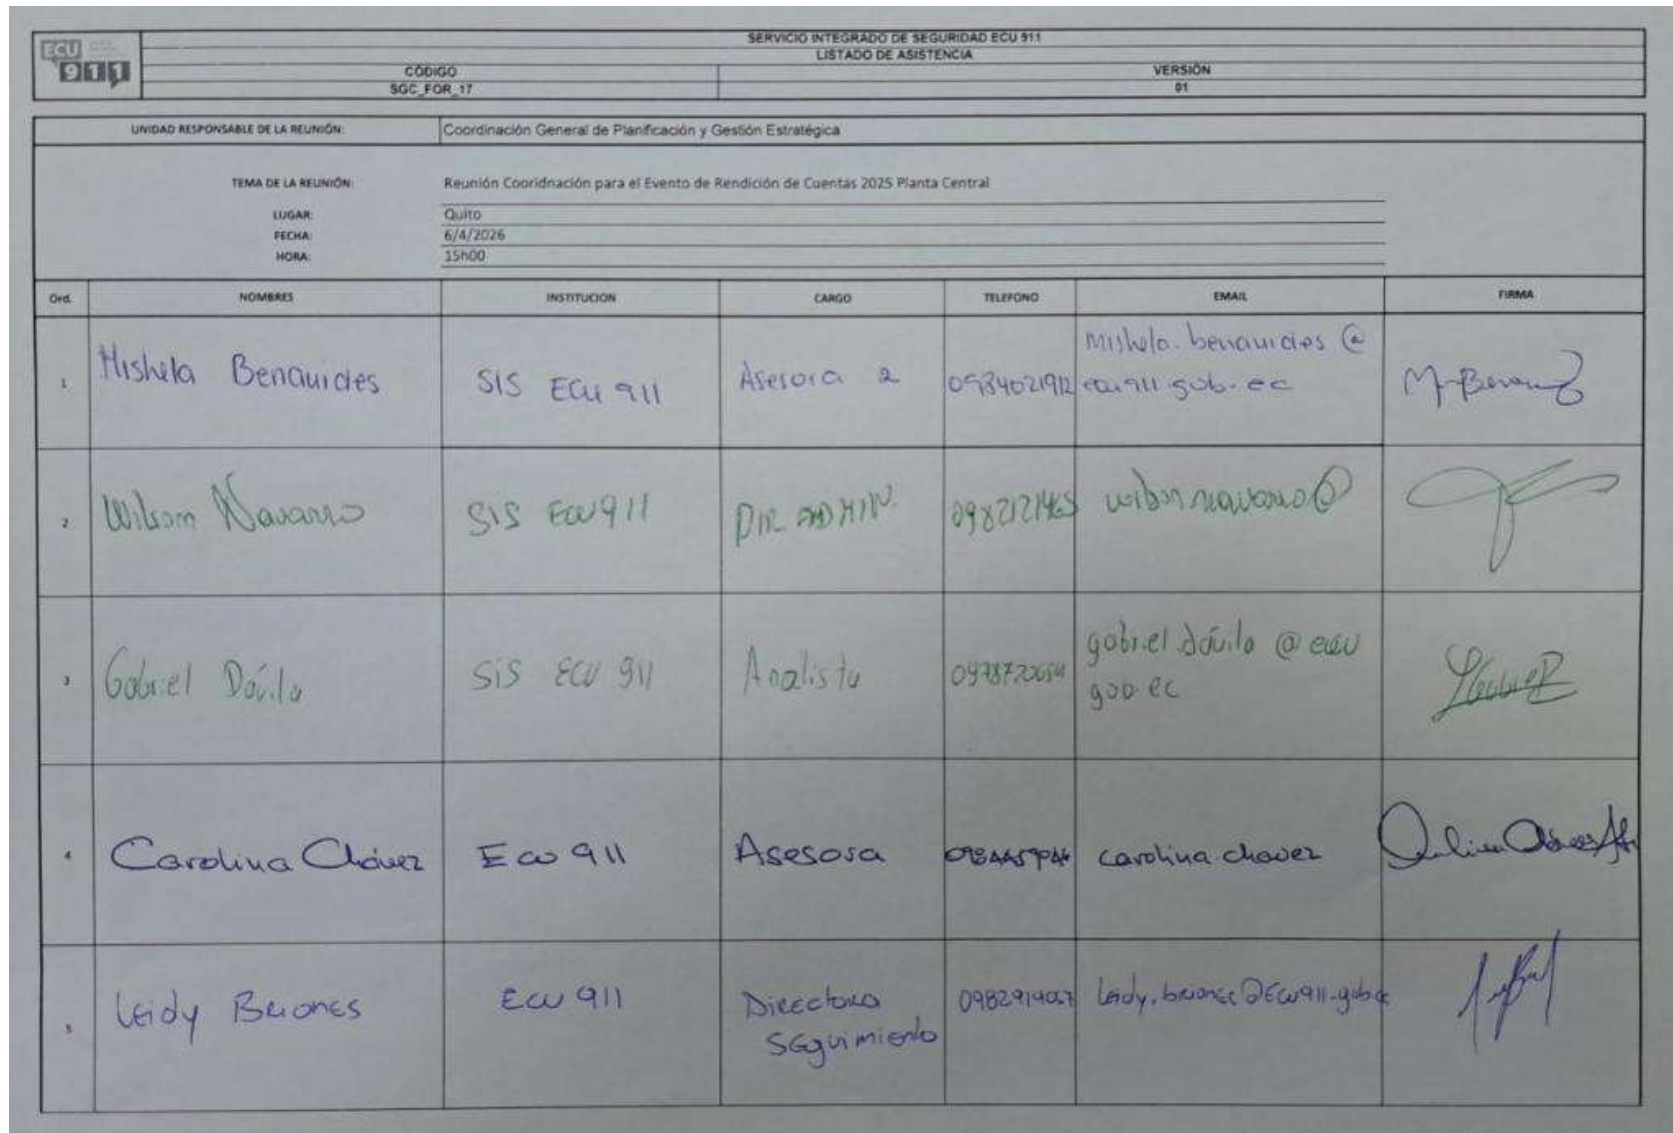 ECU
911
SERVICIO INTEGRADO DE SEGURIDAD ECU 911
LISTADO DE ASISTENCIA
CÓDIGO VERSIÓN
SGC_FOR_17 01
UNIDAD RESPONSABLE DE LA REUNIÓN: Coordinación General de Planificación y Gestión Estratégica
TEMA DE LA REUNIÓN: Reunión Cooridnación para el Evento de Rendición de Cuentas 2025 Planta Central
LUGAR: Quito
FECHA: 6/4/2026
HORA: 15h00
Ord. NOMBRES INSTITUCION CARGO TELEFONO EMAIL FIRMA
1 Mishela Benavides SIS ECU 911 Asesora 2 0984021912 mishela.benavides @
ecu911.gob.ec
2 Wilson Navarro SIS ECU 911 DIR ADMIN. wilson.navarro@
3 Gabriel Dávila SIS ECU 911 Analista gabriel.dávila @ ecu
gob ec
4 Carolina Chávez Ecu 911 Asesora carolina chavez
5 Leidy Briones ECU 911 Directora
Seguimiento
Leidy.briones@ECU911.gob.ec